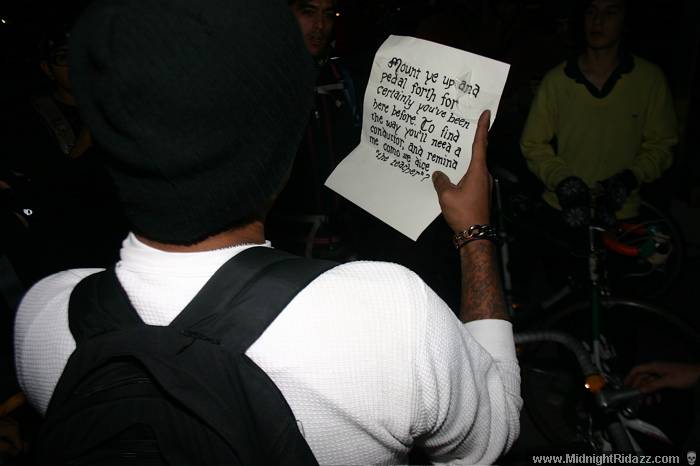 Mount ye up and
pedal forth for
certainly you've been
here before. To find
the way you'll need a
conductor, and remind
me como we dice
"the teacher"?
www.MidnightRidazz.com